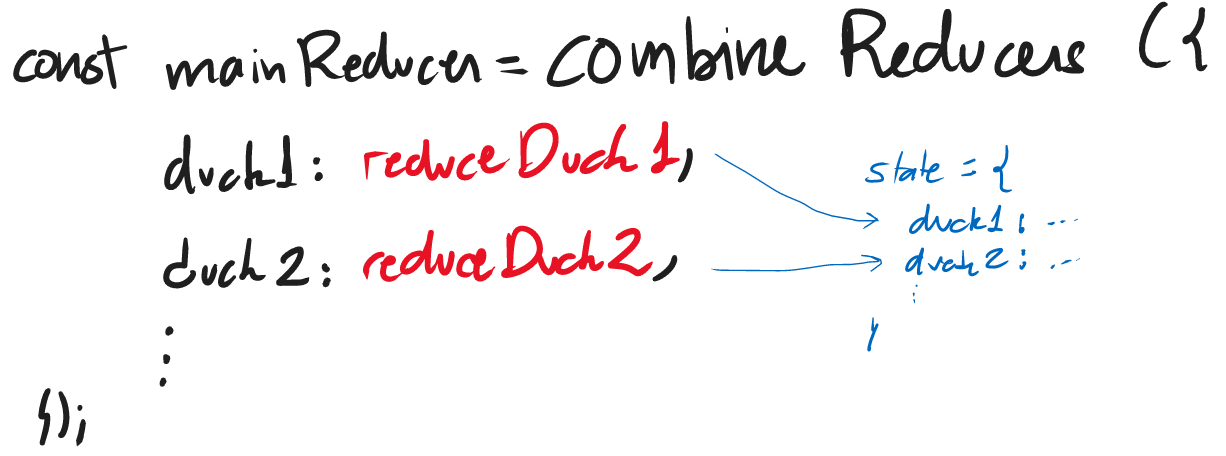 const mainReducer = combineReducers ({
duck1: reduceDuck1,
duck2: reduceDuck2,
⋮
});
state = {
duck1: ...
duck2: ...
⋮
}